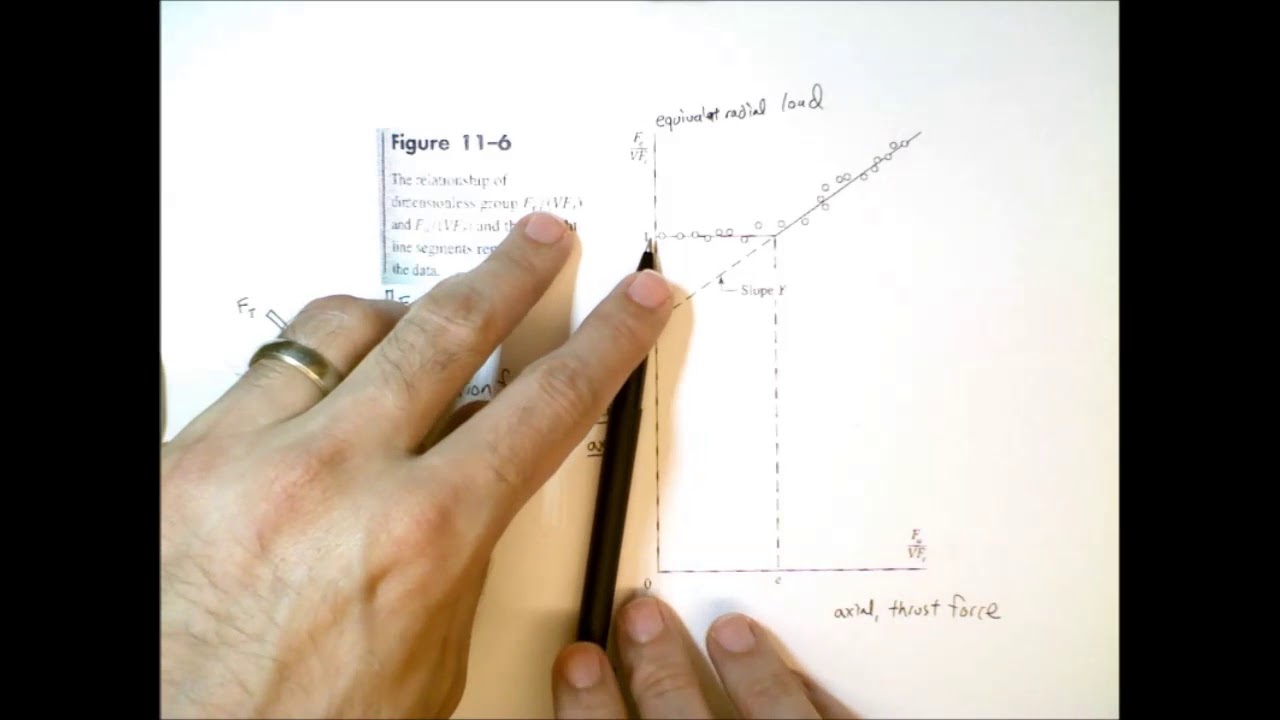 equivalent radial load
Figure 11–6
The relationship of
dimensionless group Fe/(VFr)
and Fa/(VFr) and the
line segments
the data.
Fe
VFr
1
Slope Y
FT
Fa
VFr
0
e
axial, thrust force